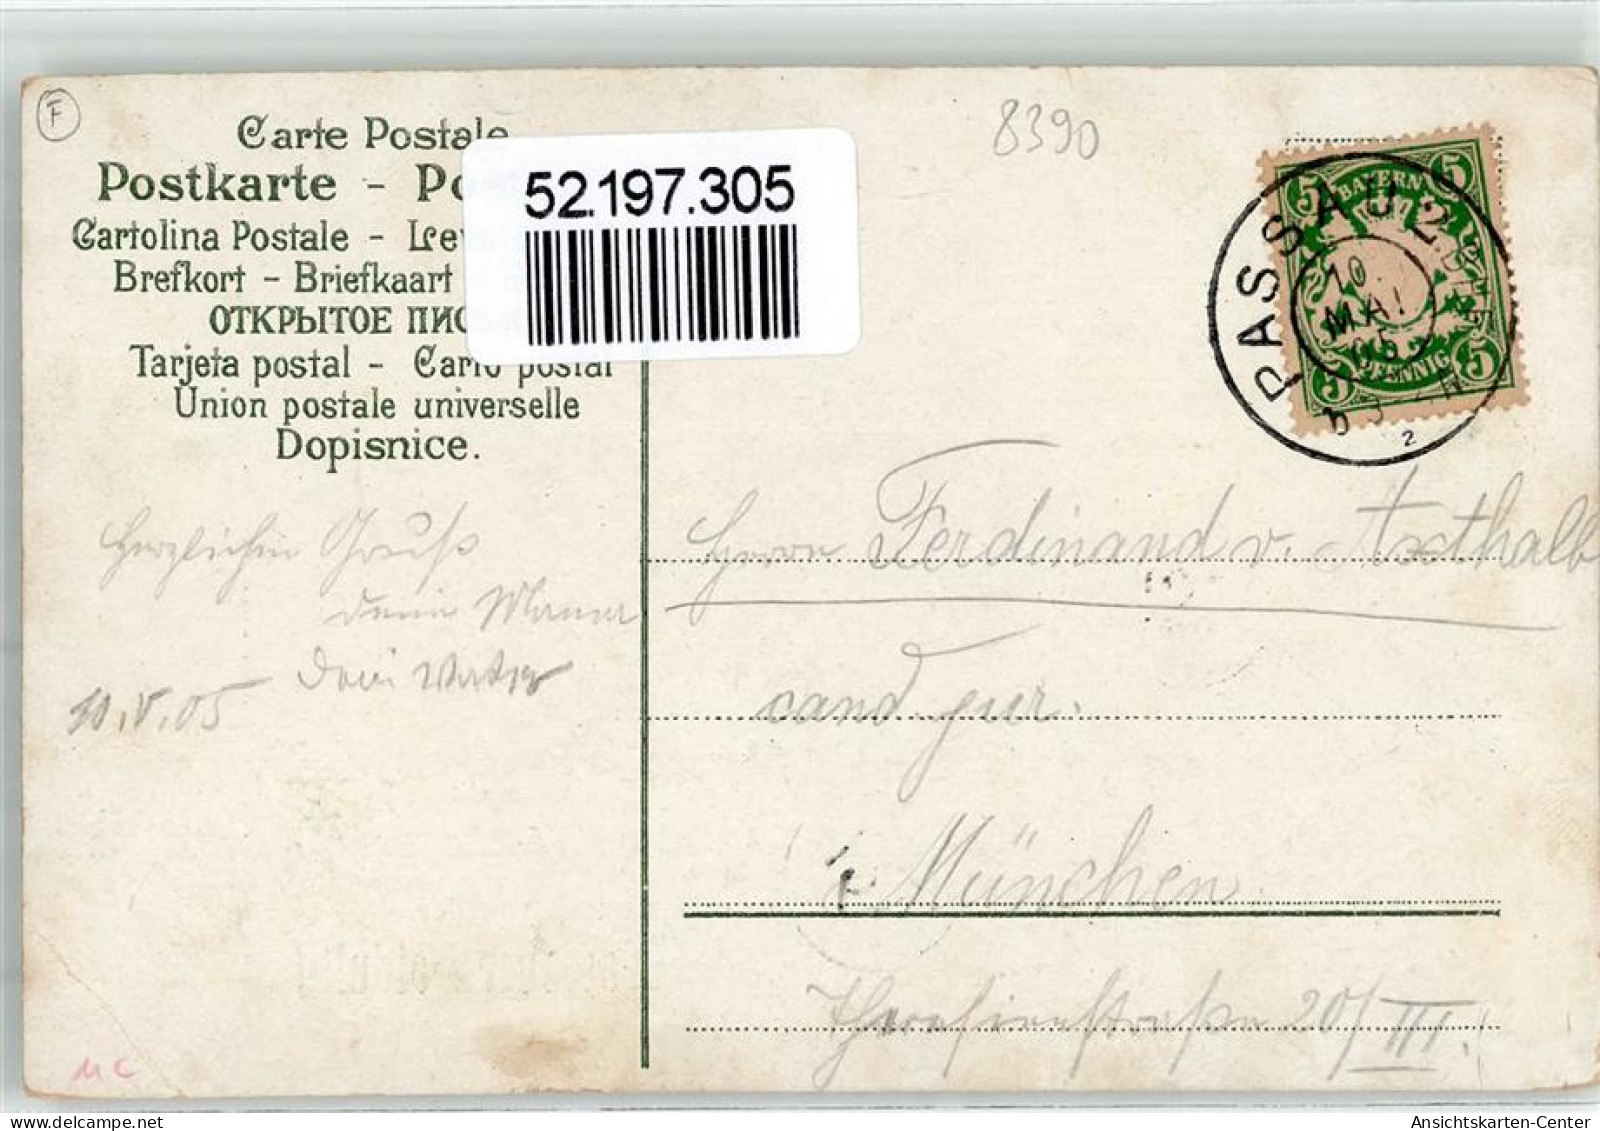 F
8390
Carte Postale
Postkarte - Po
Cartolina Postale - Lev
Brefkort - Briefkaart
ОТКРЫТОЕ ПИС
Tarjeta postal - Carto postal
Union postale universelle
Dopisnice.
52.197.305
BAYERN
5 5
5 5
PFENNIG
PASSAU 2
10
MAI
05
2
Herzlichen Gruß
Deine Mama
Dein Vater
10.V.05
Herrn Ferdinand v. Axthalb
cand jur.
München
Theresienstraße 20/III.
MC
Ansichtskarten-Center